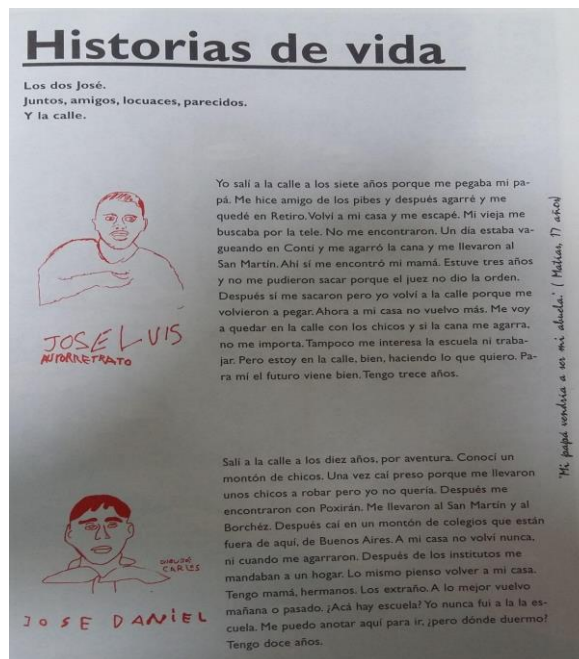 Historias de vida
Los dos José.
Juntos, amigos, locuaces, parecidos.
Y la calle.
Yo salí a la calle a los siete años porque me pegaba mi pa-
pá. Me hice amigo de los pibes y después agarré y me
quedé en Retiro. Volví a mi casa y me escapé. Mi vieja me
buscaba por la tele. No me encontraron. Un día estaba va-
gueando en Conti y me agarró la cana y me llevaron al
San Martín. Ahí sí me encontró mi mamá. Estuve tres años
y no me pudieron sacar porque el juez no dio la orden.
Después sí me sacaron pero yo volví a la calle porque me
volvieron a pegar. Ahora a mi casa no vuelvo más. Me voy
a quedar en la calle con los chicos y si la cana me agarra,
no me importa. Tampoco me interesa la escuela ni traba-
jar. Pero estoy en la calle, bien, haciendo lo que quiero. Pa-
ra mí el futuro viene bien. Tengo trece años.
JOSE LUIS
AUTORRETRATO
"Mi papá vendría a ser mi abuela." (Matías, 17 años)
Salí a la calle a los diez años, por aventura. Conocí un
montón de chicos. Una vez caí preso porque me llevaron
unos chicos a robar pero yo no quería. Después me
encontraron con Poxirán. Me llevaron al San Martín y al
Borchéz. Después caí en un montón de colegios que están
fuera de aquí, de Buenos Aires. A mi casa no volví nunca,
ni cuando me agarraron. Después de los institutos me
mandaban a un hogar. Lo mismo pienso volver a mi casa.
Tengo mamá, hermanos. Los extraño. A lo mejor vuelvo
mañana o pasado. ¿Acá hay escuela? Yo nunca fui a la es-
cuela. Me puedo anotar aquí para ir, ¿pero dónde duermo?
Tengo doce años.
DIBUJÓ
CARLOS
JOSE DANIEL